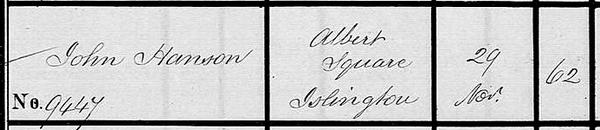 John Hanson
No. 9447
Albert
Square
Islington
29
Nov.
62